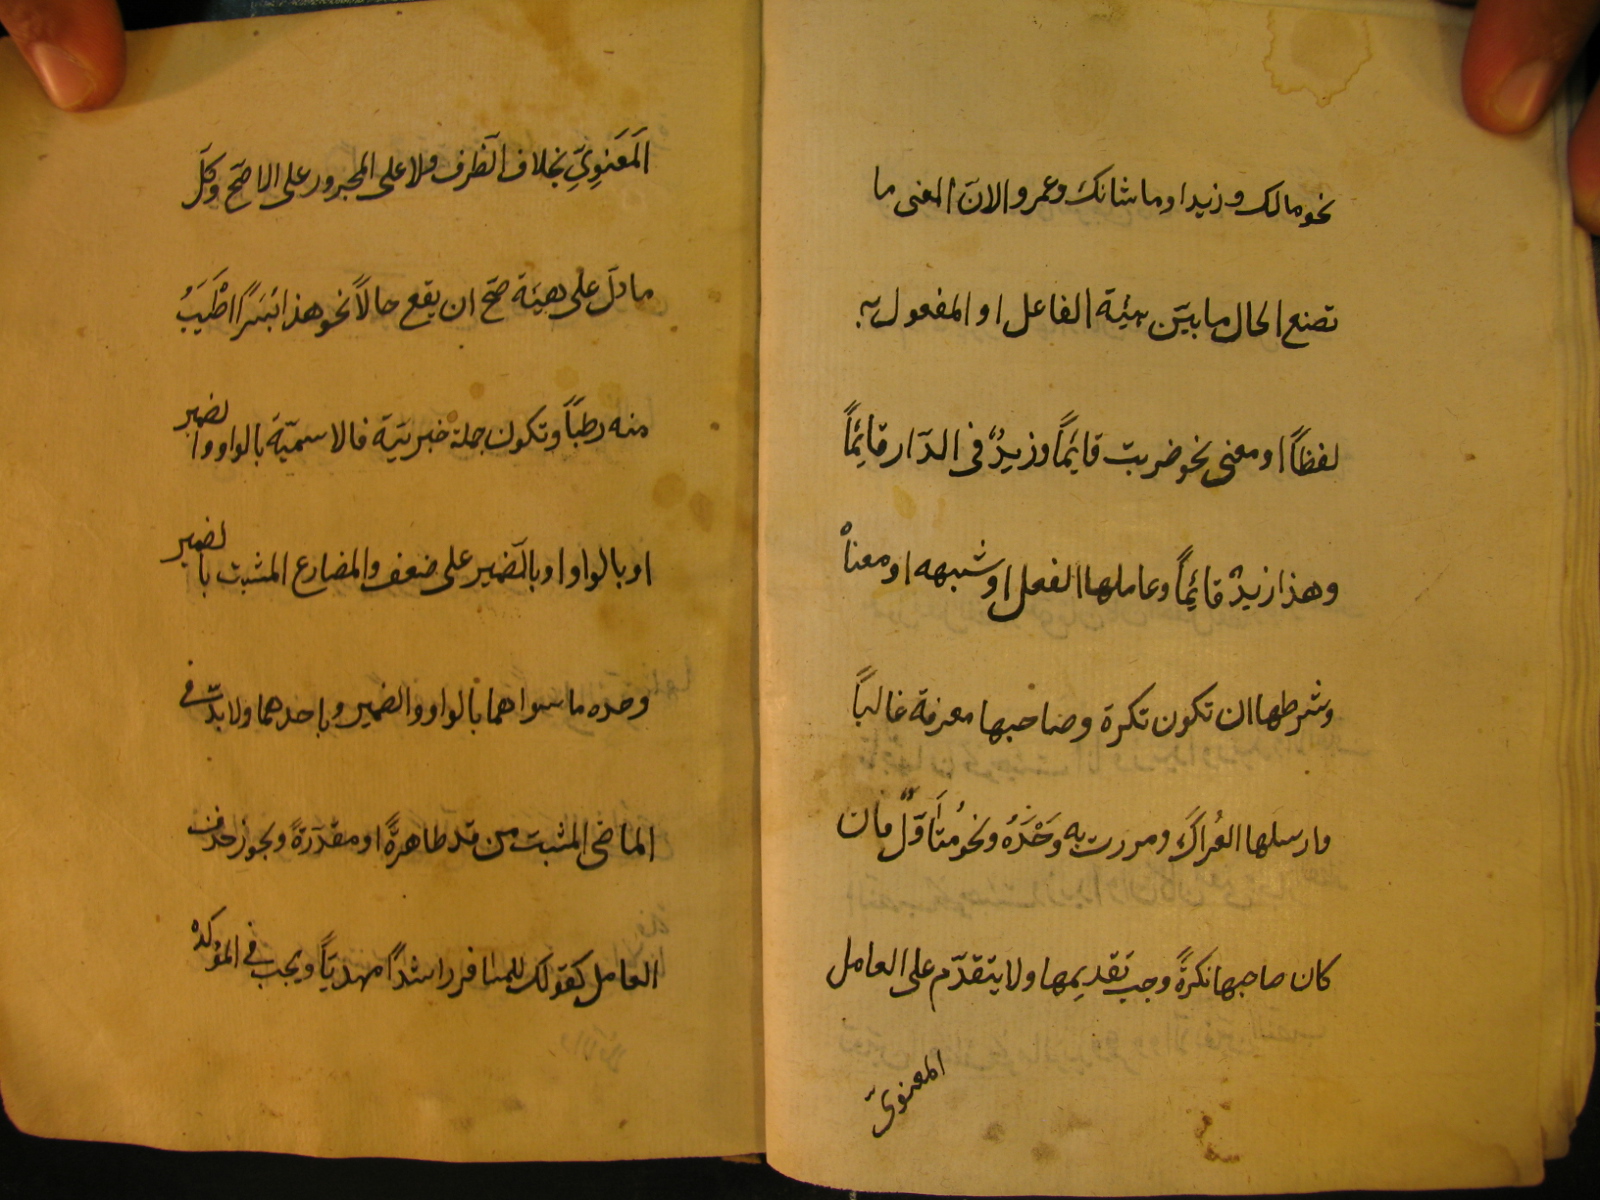 نحو مالك و زيدا وما شانك وعمرو الان المعنى ما
تصنع الحال ما يبيّن هيئة الفاعل او المفعول به
لفظاً او معنى نحو ضربت قائماً وزيدٌ فى الدّار قائماً
وهذا زيدٌ قائماً وعاملها الفعل او شبهه او معناه
وشرطها ان تكون نكرة وصاحبها معرفة غالباً
وارسلها العُراكَ ومررت به وَحْدَهُ ونحوُ متأَوَّلٌ فان
كان صاحبها نكرةً وجب تقديمها ولا يتقدّم على العامل
المعنوىّ
المَعَنوِىِّ بخلاف الظّرف ولا على المجرور على الاصّح وكلّ
ما دلّ على هيئة صّح ان يقع حالاً نحو هذا بُسَرًا اطْيَبُ
منه رطباً وتكون جملة خبريّة فالاسميّة بالواو والضمير
او بالواو او بالّضمير على ضعف والمضارع المثبت بالضمير
وحده ما سواهما بالواو والضمير و باحدهما ولا بدّ فى
الماضى المثبت من قد ظاهرةً او مقدّرةً ويجوز حذف
العامل كقولك للمسافر راشداً مهديّاً ويجب فى المؤكده